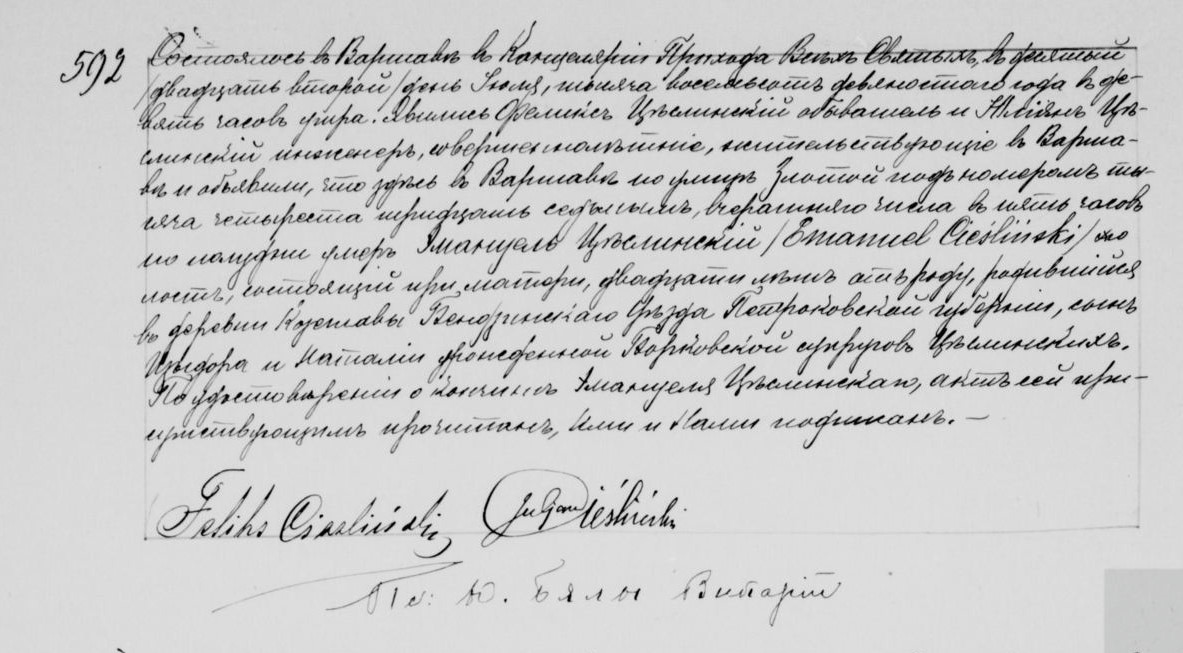 592 Состоялось въ Варшавѣ въ Канцеляріи Прихода Всѣхъ Святыхъ, въ десятый
/двадцать второй/ день Іюля, тысяча восемьсотъ девяностаго года въ де-
вять часовъ утра. Явились Феликсъ Цѣслинскій обыватель и Юліянъ Цѣ-
слинскій инженеръ, совершеннолѣтніе, жительствующіе въ Варша-
вѣ и объявили, что здѣсь въ Варшавѣ по улицѣ Златой подъ номеромъ ты-
сяча четыреста тридцать седьмымъ, вчерашняго числа въ пять часовъ
по полудни умеръ Эмануель Цѣслинскій /Emanuel Cieśliński/ хо
лостъ, состоящій при матери, двадцати лѣтъ отъ роду, родившійся
въ деревни Бендзинскаго Уѣзда Петроковской губерніи, сынъ
Изыдора и Наталіи урожденной Борковской супруговъ Цѣслинскихъ.
По удостовѣреніи о кончинѣ Эмануеля Цѣслинскаго, актъ сей при-
сутствующимъ прочитанъ, Ими и Нами подписанъ. —
Feliks Cieśliński Juljan Cieśliński
Кс: Ю. Бялы Викарій